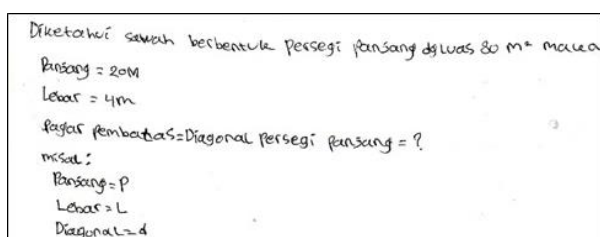 Diketahui sawah berbentuk persegi panjang dg luas 80 m² maka
Panjang = 20M
Lebar = 4m
Pagar pembatas = Diagonal persegi panjang = ?
misal :
Panjang = P
Lebar = L
Diagonal = d